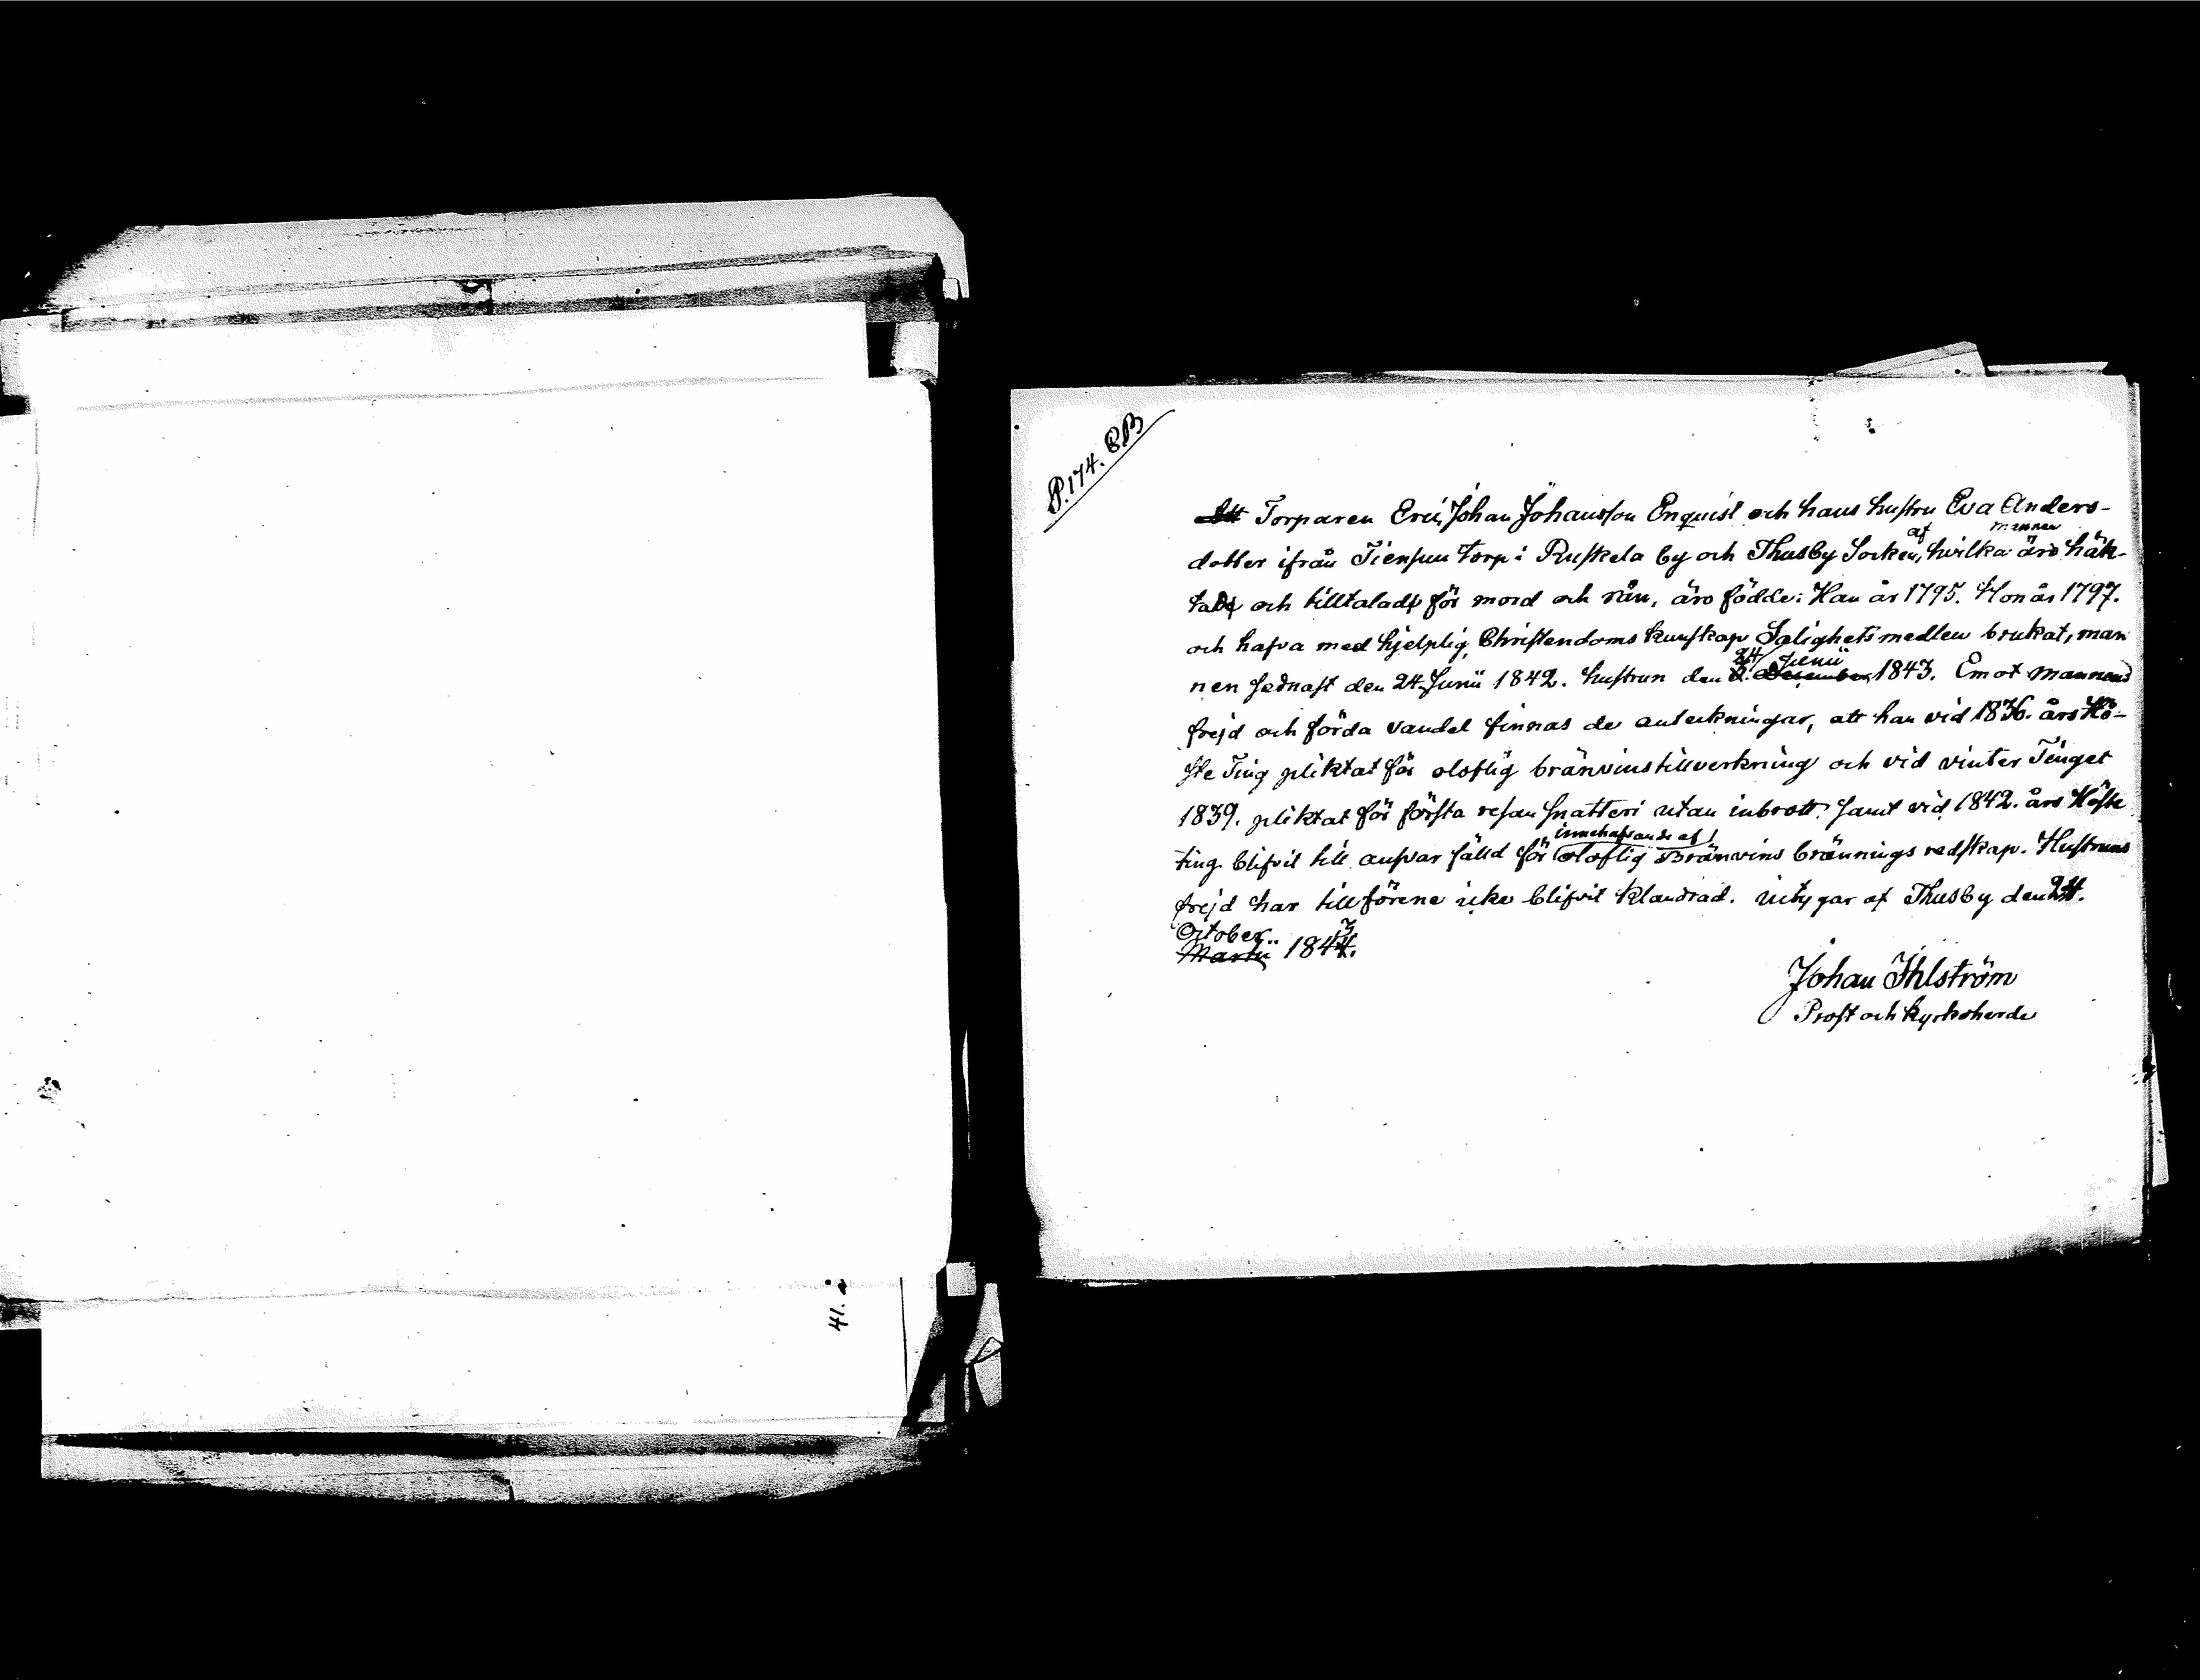 P. 174. CB
Att Torparen Eric Johan Johansson Enquist och hans hustru Eva Anders-
af mannen
dotter ifrån Tiensuu torp i Ruskela by och Thusby Socken, hvilka äro häk-
tade och tilltalade för mord och rån, äro födde: Han år 1795. Hon år 1797.
och hafva med hjelplig Christendoms kunskap Salighetsmedlen brukat, man
24 Junii
nen sednast den 24 Junii 1842. hustrun den December 1843. Emot mannens
frejd och förda vandel finnas de anteckningar, att han vid 1836. års Hö-
ste Ting pliktat för oloflig bränvinstillverkning och vid vinter Tinget
1839. pliktat för första resan snatteri utan inbrott. samt vid 1842. års Höste
innehafvande af
ting blifvit till ansvar fälld för oloflig Bränvins brännings redskap. Hustruns
frejd har tillförene icke blifvit klandrad. Uitygar af Thusby den 24.
October 3
Martii 1844.
Johan Ihlström
Prost och Kyrkoherde
41.